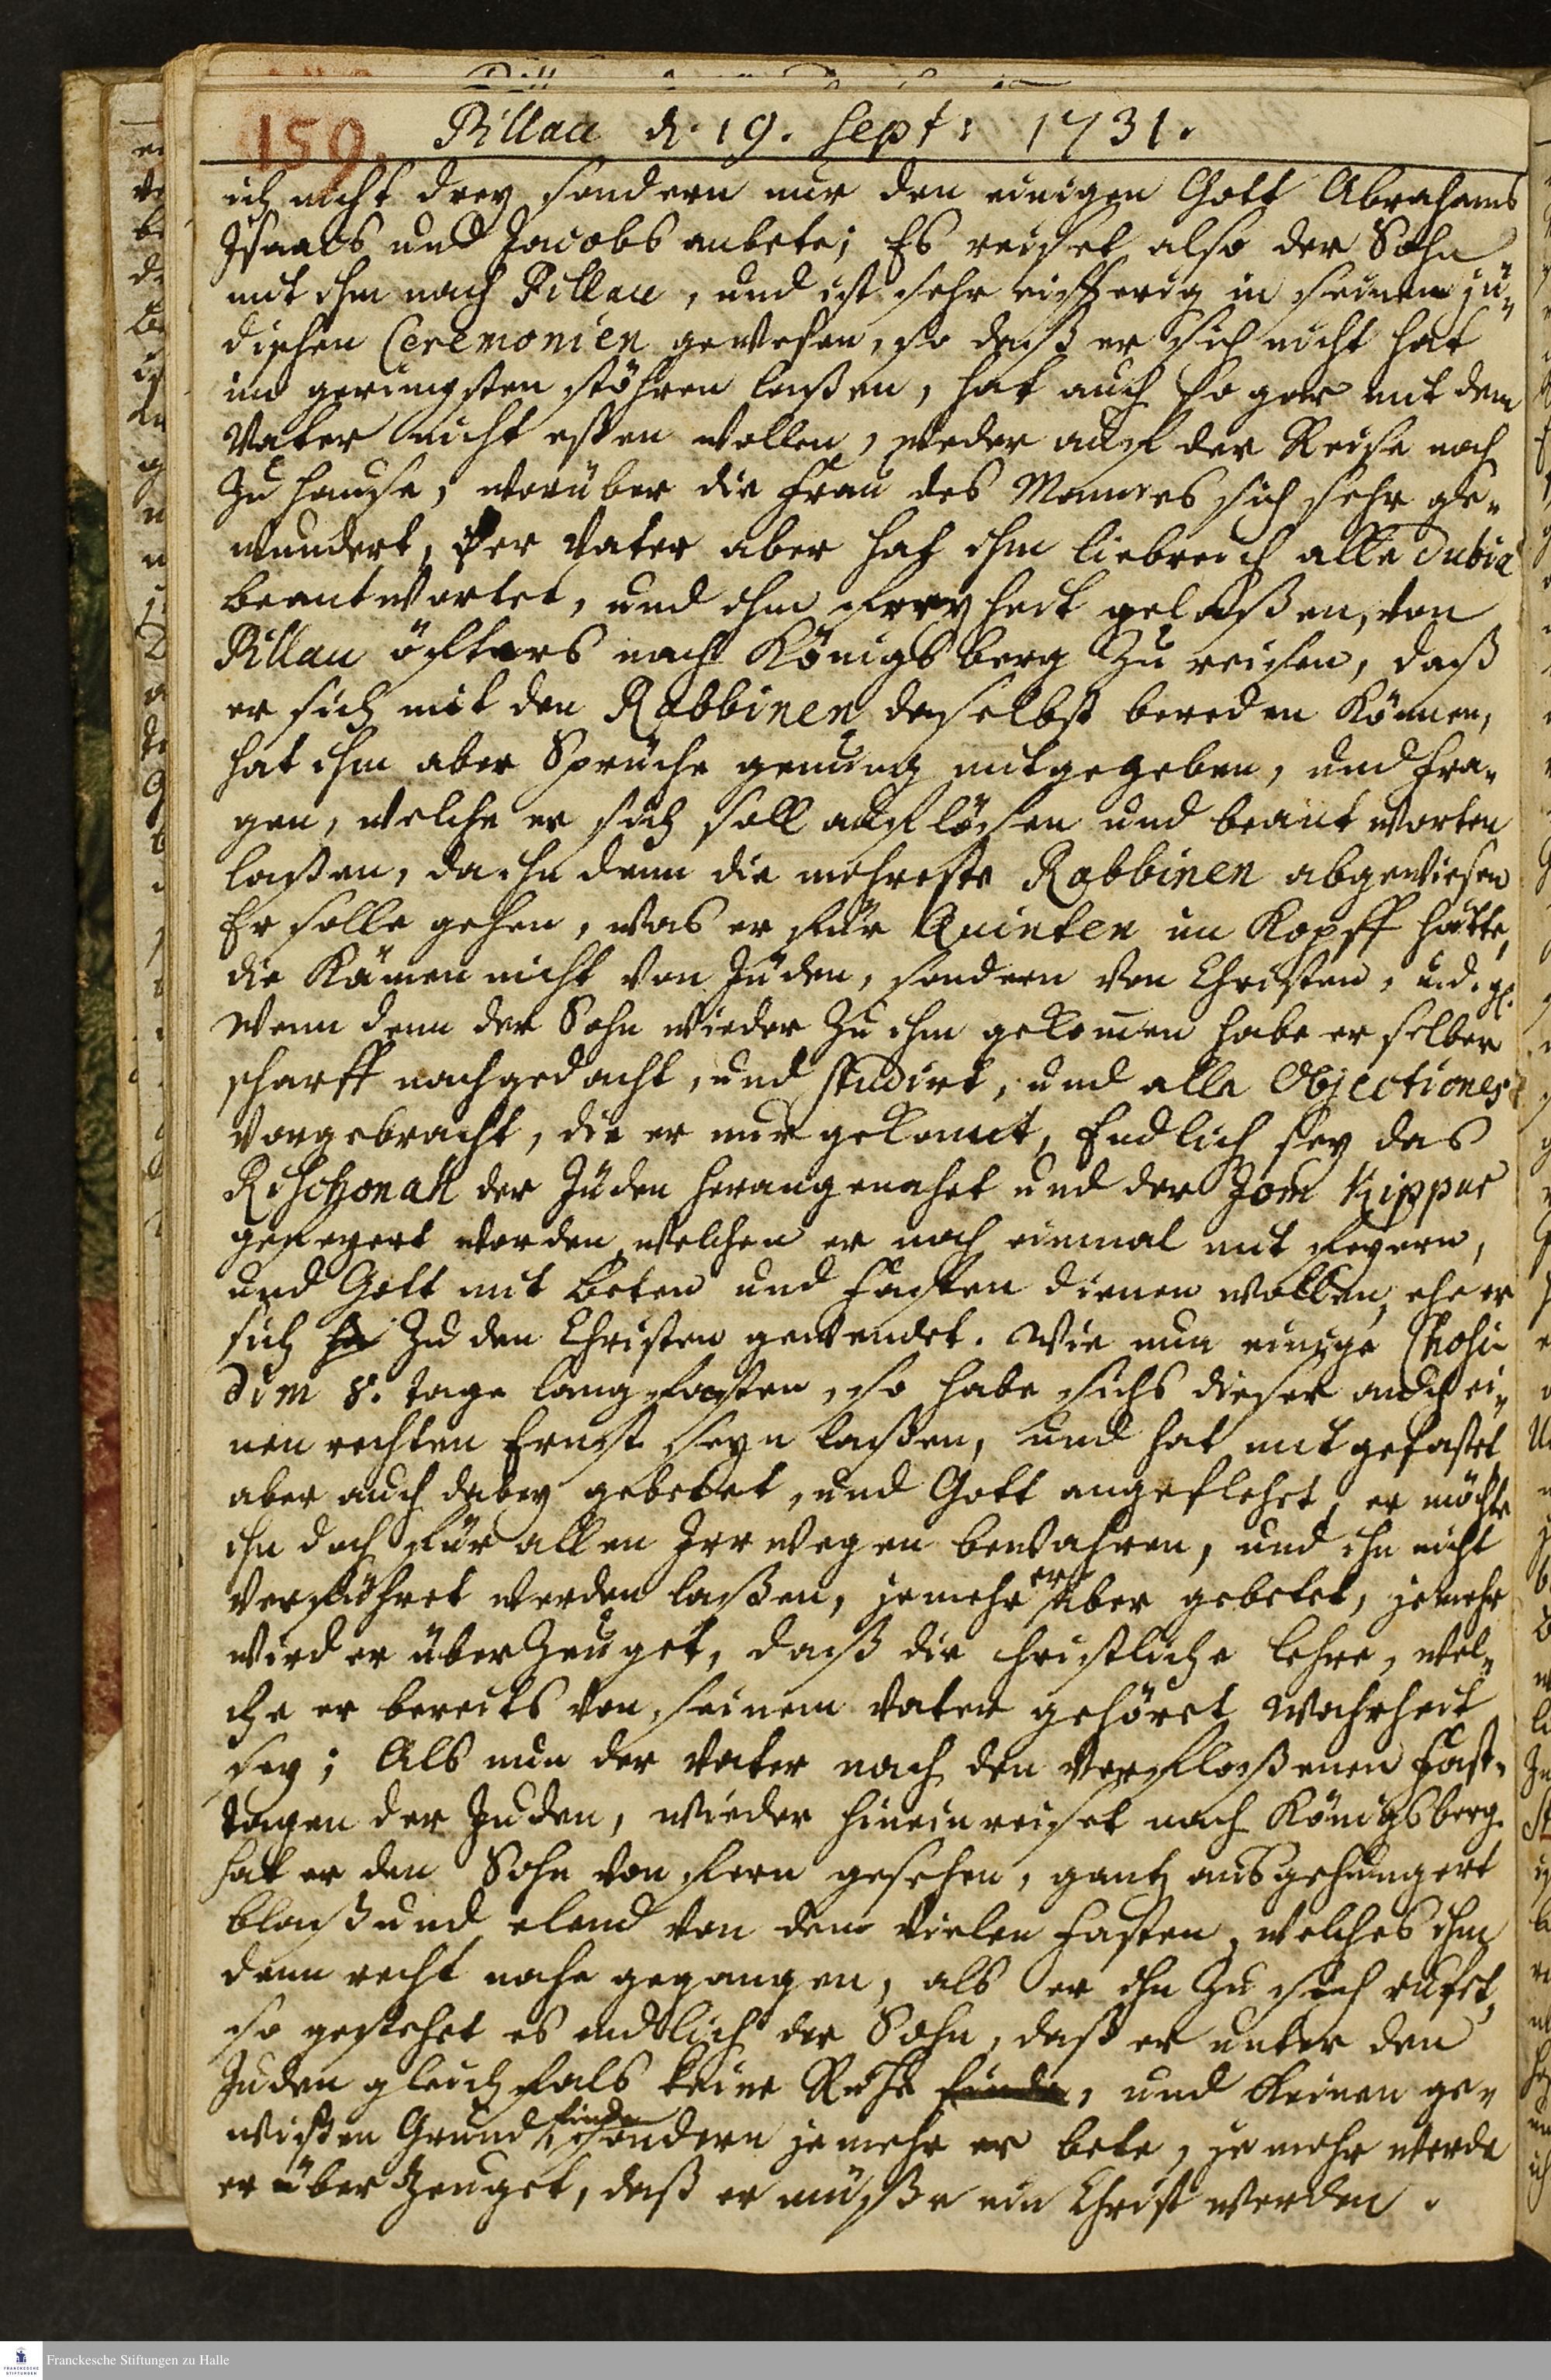 159. Pillau d. 19. Sept: 1731.
ich nicht drey sondern nur den einigen Gott Abrahams
Isaacs und Jacobs anbete; Es reiset also der Sohn
mit ihm nach Pillau, und ist sehr eifferig in seinen jü-
dischen Ceremonien gewesen, so daß er sich nicht hat
im geringsten stöhren laßen, hat auch so gar mit dem
Vater nicht eßen wollen, weder auf der Reise noch
zu Hause, worüber die Frau des Mannes sich sehr ge-
wundert, Der Vater aber hat ihm liebreich alle dubia
beantwortet, und ihm Freyheit gelaßen, von
Pillau öfters nach Königsberg zu reisen, daß
er sich mit den Rabbinen daselbst bereden können,
hat ihm aber Sprüche genung mitgegeben, und Fra-
gen, welche er sich soll auflösen und beantworten
laßen, da ihn denn die mehreste Rabbinen abgewiesen
Er solle gehen, was er für Quinten im Kopff hätte,
die kämen nicht von Jüden, sondern von Christen, u. d. gl.
Wenn denn der Sohn wieder zu ihm gekommen habe er selber
scharff nachgedacht, und studirt, und alle Objectiones
vorgebracht, die er nur gekonnt, Endlich sey das
Rischonah der Jüden herangenahet und der Jom Kippur
gefeyert worden, welchen er noch einmal mit feyern,
und Gott mit Beten und Fasten dienen wollen, ehe er
sich zu den Christen gewendet. Wie nun einige Chosi-
dim 8. tage lang fasten, so habe sichs dieser auch ei-
nen rechten Ernst seyn laßen, und hat mit gefastet
aber auch dabey gebetet, und Gott angeflehet, er möchte
ihn doch für allen Irrwegen bewahren, und ihn nicht
verführet werden laßen, jemehr er aber gebetet, jemehr
wird er überzeuget, daß die christliche Lehre, wel-
che er bereits von seinem Vater gehöret Wahrheit
sey; Als nun der Vater nach den verfloßenen Fast-
tagen der Juden, wieder hineinreiset nach Königsberg
hat er den Sohn von fern gesehen, gantz ausgehungert
blaß und elend von dem vielen Fasten, welches ihm
denn recht nahe gegangen, als er ihn zu sich rufet,
so gestehet es endlich der Sohn, daß er unter den
Juden gleichfals keine Ruhe finde, und keinen ge-
wißen Grund finde, sondern jemehr er bete, je mehr werde
er überzeuget, daß er müße ein Christ werden.
Franckesche Stiftungen zu Halle